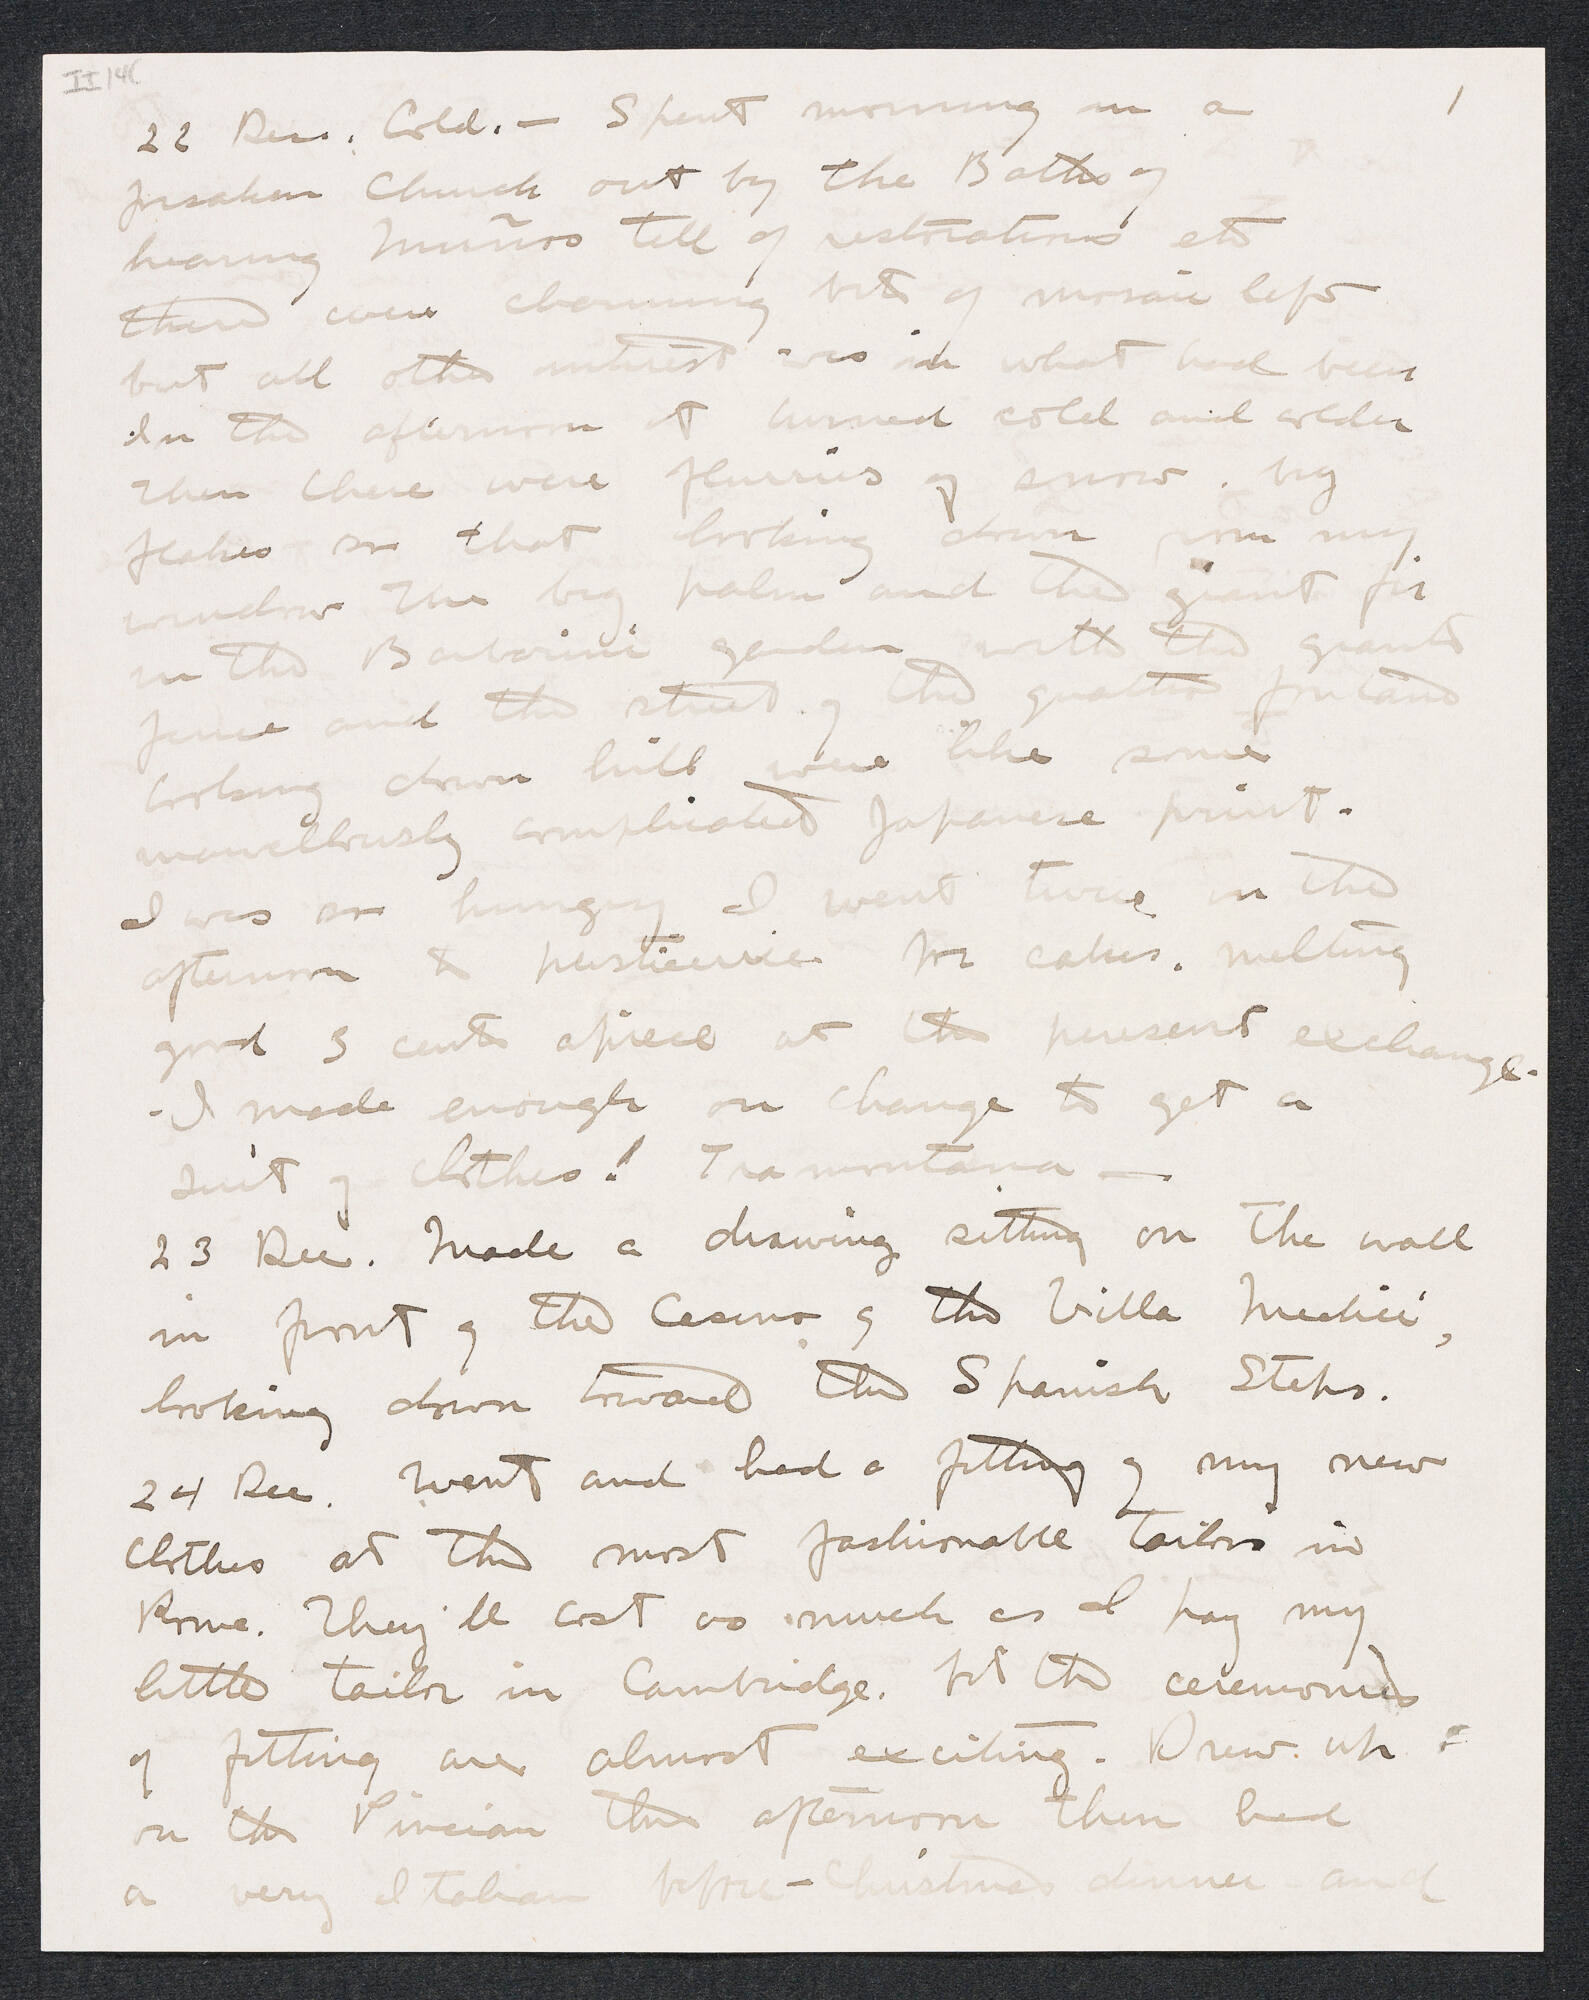 II 14(
1
22 Dec. Cold. — Spent morning in a
forsaken church out by the Baths of
hearing Muñoz tell of restorations etc
there were charming bits of mosaic left
but all other interest was in what had been
In the afternoon it turned cold and colder
then there were flurries of snow. big
flakes so that looking down from my
window the big palm and the giant fir
in the Barberini garden with the giant
fence and the street of the quattro fontane
looking down hill were like some
marvellously complicated Japanese print.
I was so hungry I went twice in the
afternoon to for cakes. melting
good 3 cents apiece at the present exchange.
- I made enough on change to get a
suit of clothes! Tramontana —
23 Dec. Made a drawing sitting on the wall
in front of the Casino of the Villa Medici,
looking down toward the Spanish Steps.
24 Dec. Went and had a fitting of my new
clothes at the most fashionable tailors in
Rome. They'll cost as much as I pay my
little tailor in Cambridge. but the ceremonies
of fitting are almost exciting. Drew up
on the Pincian this afternoon then had
a very Italian before-Christmas dinner and